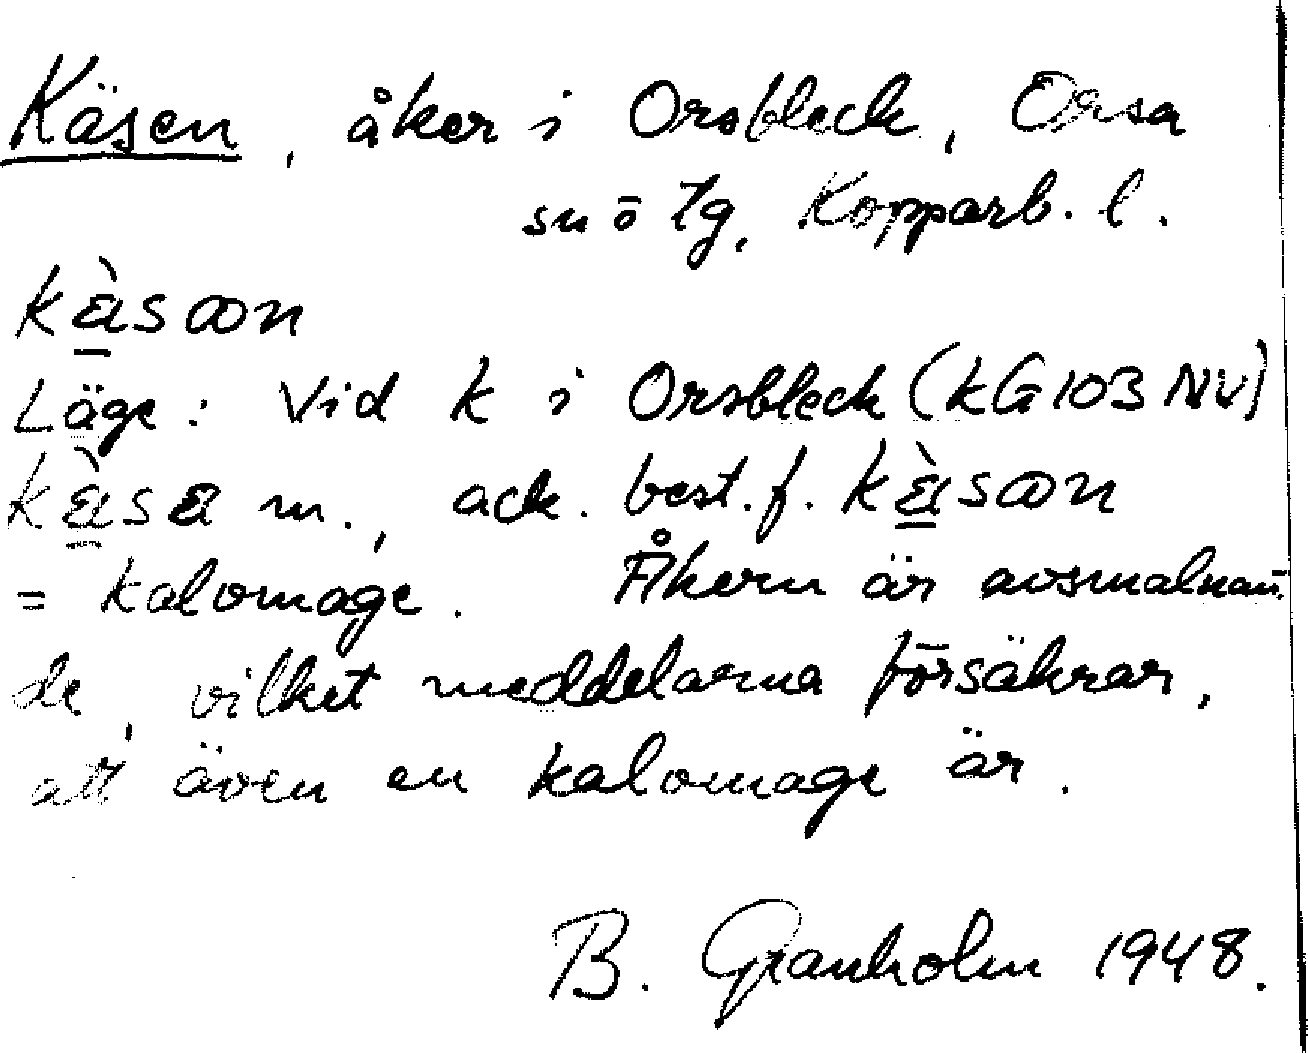 Käsen, åker i Orsbleck, Orsa
sn ö tg, Kopparb. l.
Läge: Vid k i Orsbleck (KG103NV)
m., ack. best. f.
= kalvmage. Åkern är avsmalnan-
de, vilket meddelarna försäkrar,
att även en kalvmage är.
B. Granholm 1948.